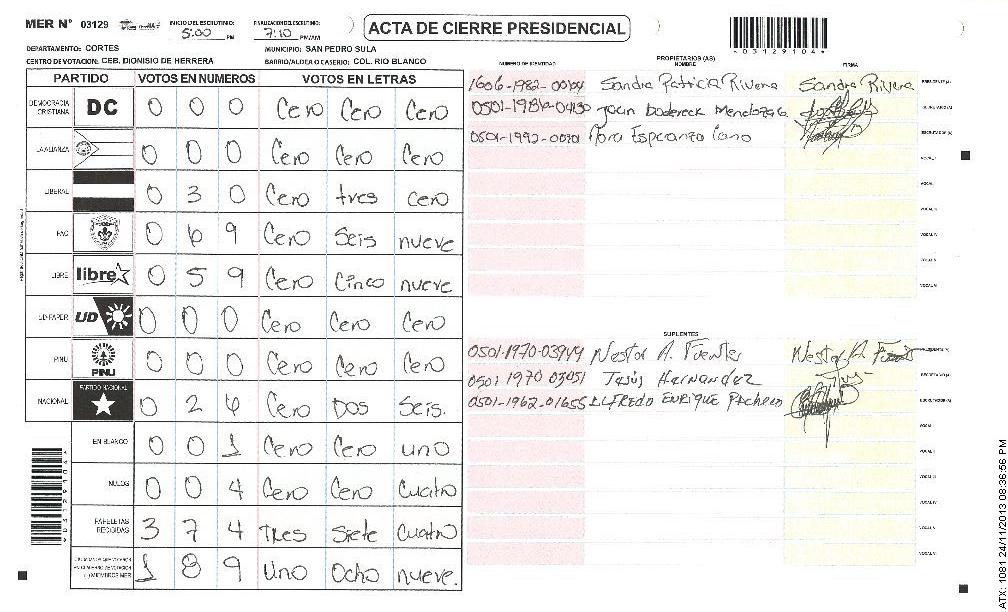 MER N° 03129 INICIO DEL ESCRUTINIO: 5:00 PM FINALIZACION DEL ESCRUTINIO: 7:10 PM/AM ACTA DE CIERRE PRESIDENCIAL
03129104
DEPARTAMENTO: CORTES MUNICIPIO: SAN PEDRO SULA
CENTRO DE VOTACION: CEB. DIONISIO DE HERRERA BARRIO/ALDEA O CASERIO: COL. RIO BLANCO
PARTIDO VOTOS EN NUMEROS VOTOS EN LETRAS
DEMOCRACIA CRISTIANA DC 0 0 0 Cero Cero Cero
LA ALIANZA 0 0 0 Cero Cero Cero
LIBERAL 0 3 0 Cero tres Cero
PAC 0 6 9 Cero Seis nueve
LIBRE libre 0 5 9 Cero Cinco nueve
UD-FAPER UD 0 0 0 Cero Cero Cero
PINU PINU 0 0 0 Cero Cero Cero
NACIONAL PARTIDO NACIONAL 0 2 6 Cero Dos Seis.
EN BLANCO 0 0 1 Cero Cero uno
NULOS 0 0 4 Cero Cero Cuatro
PAPELETAS RECIBIDAS 3 7 4 Tres Siete Cuatro
1 8 9 Uno Ocho nueve.
PROPIETARIOS (AS)
NUMERO DE IDENTIDAD NOMBRE FIRMA
1606-1982- Sandra Patricia Rivera Sandra Rivera PRESIDENTE (A)
0501-1986-04130 SECRETARIO (A)
0501-1992- Esperanza ESCRUTADOR (A)
VOCAL I
VOCAL II
VOCAL III
VOCAL IV
VOCAL V
VOCAL VI
SUPLENTES
0501-1970-03944 Nestor A. Fuentes Nestor A. PRESIDENTE (A)
0501 1970 03051 Jesús Hernandez SECRETARIO (A)
0501-1962-01655 ELFREDO ENRIQUE Pacheco ESCRUTADOR (A)
VOCAL I
VOCAL II
VOCAL III
VOCAL IV
VOCAL V
VOCAL VI
03129104
ATX: 1081 24/11/2013 08:36:56 PM